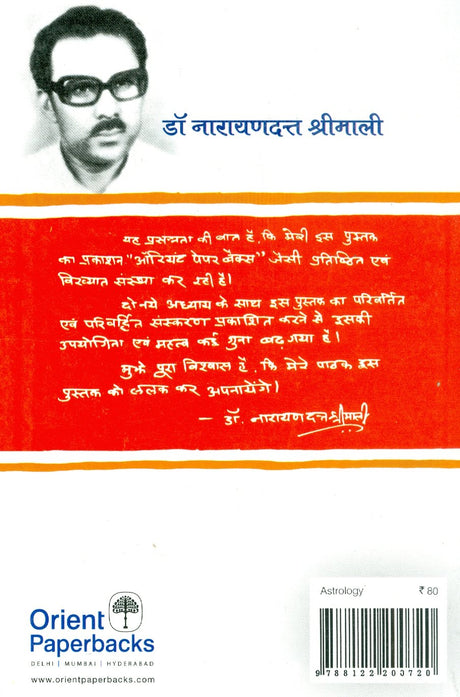 डॉ नारायणदत्त श्रीमाली
यह प्रसन्नता की बात है, कि मेरी इस पुस्तक
का प्रकाशन "ऑरियंट पेपर बैक्स" जैसी प्रतिष्ठित एवं
विख्यात संस्था कर रही है।
दो नये अध्याय के साथ इस पुस्तक का परिवर्तित
एवं परिवर्द्धित संस्करण प्रकाशित करने से इसकी
उपयोगिता एवं महत्व कई गुना बढ़ गया है।
मुझे पूरा विश्वास है, कि मेरे पाठक इस
पुस्तक को ललक कर अपनायेंगे।
- डॉ. नारायणदत्त श्रीमाली
Astrology ₹ 80
9 788122 203720
Orient
Paperbacks
DELHI | MUMBAI | HYDERABAD
www.orientpaperbacks.com